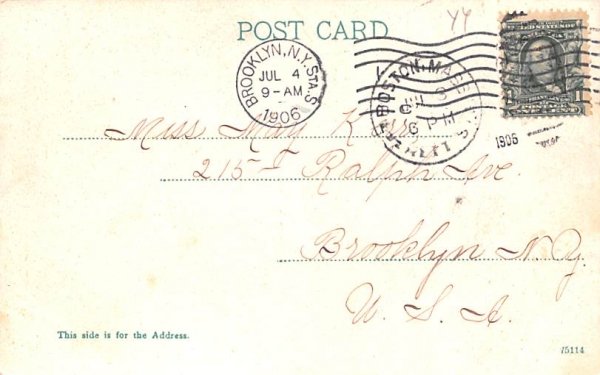 POST CARD
44
BROOKLYN, N.Y. STA. S.
JUL 4
9-AM
1906
BOSTON, MASS.
6 PM
1906
Miss May
215 Ralph Ave.
Brooklyn N.Y.
U.S.A.
This side is for the Address.
75114